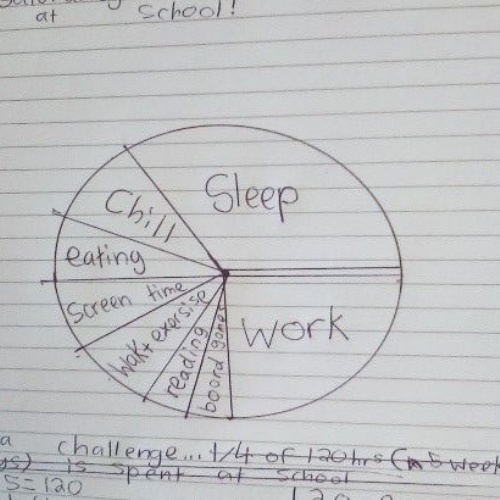 at school!
Sleep
Chill
eating
Screen time
Wak+ exersise
reading
board games
Work
a challenge... 1/4 of 120hrs (in 5 week
ys) is spent at school
5=120